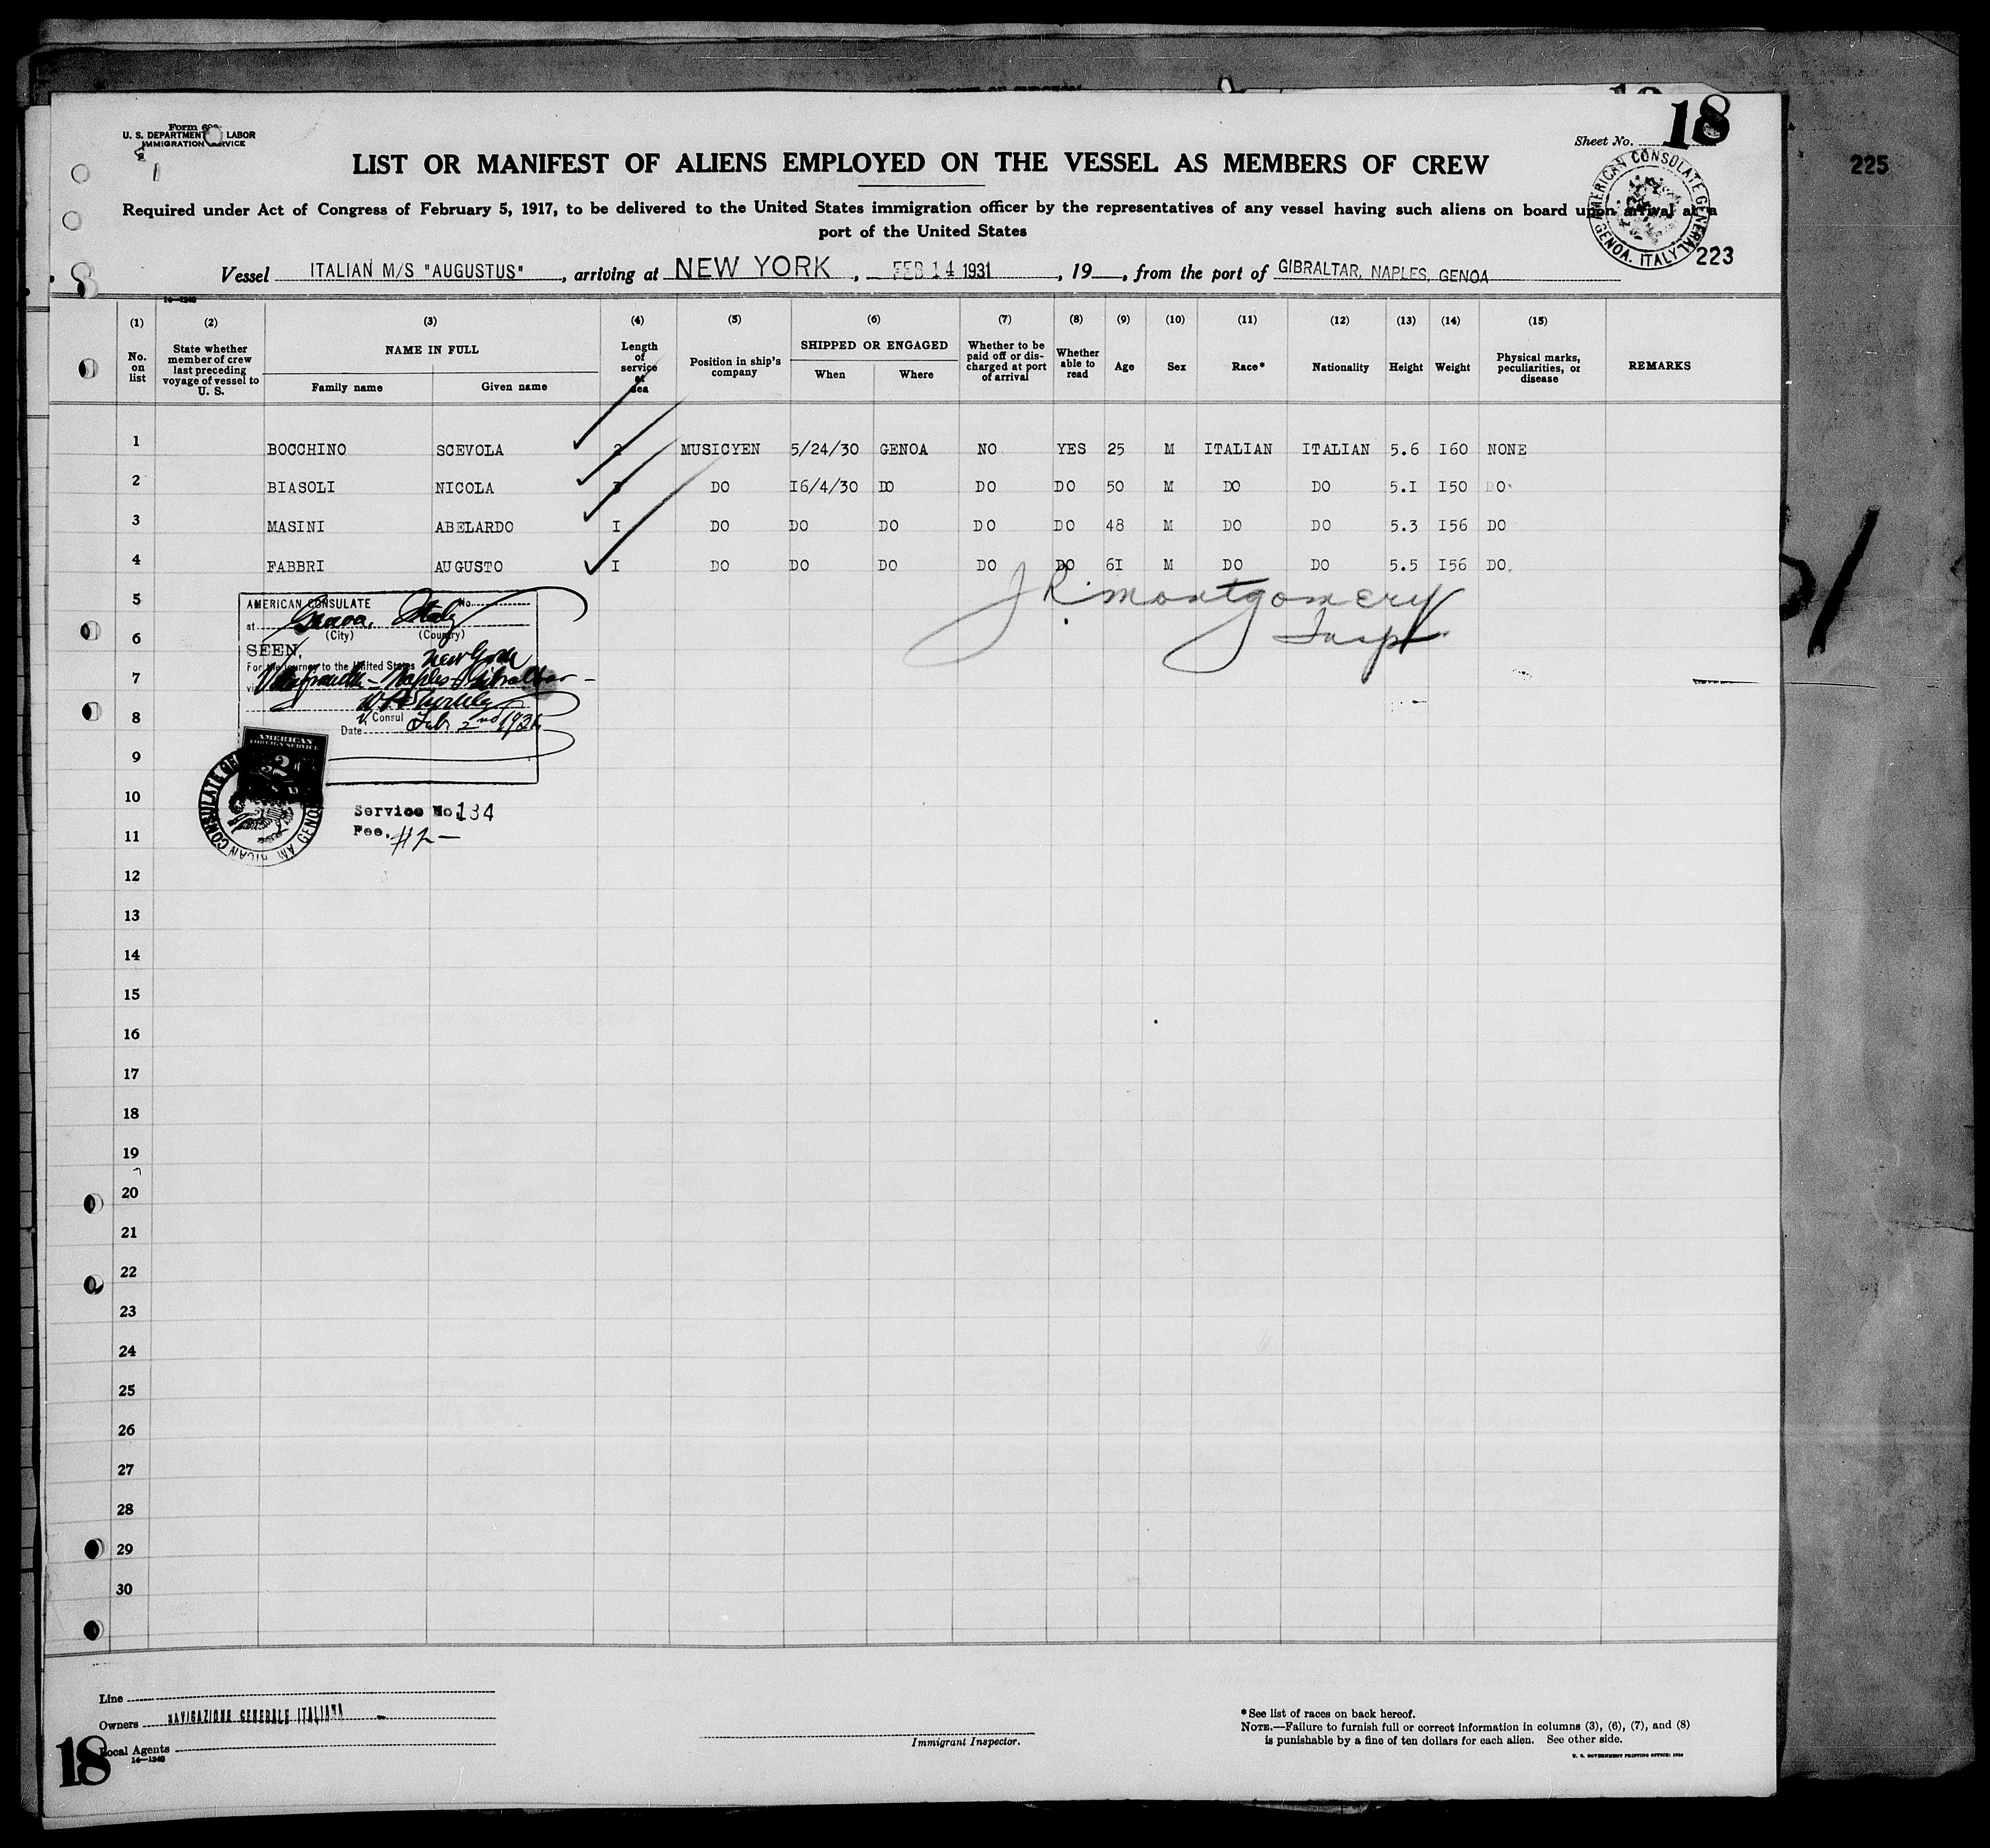 18
Form 689
U. S. DEPARTMENT LABOR
IMMIGRATION SERVICE
Sheet No. 18
LIST OR MANIFEST OF ALIENS EMPLOYED ON THE VESSEL AS MEMBERS OF CREW
225
Required under Act of Congress of February 5, 1917, to be delivered to the United States immigration officer by the representatives of any vessel having such aliens on board upon arrival at a
port of the United States
AMERICAN CONSULATE GENERAL
GENOA. ITALY
223
Vessel ITALIAN M/S "AUGUSTUS", arriving at NEW YORK, FEB 14 1931, 19__, from the port of GIBRALTAR, NAPLES, GENOA
14-1240
(1) (2) (3) (4) (5) (6) (7) (8) (9) (10) (11) (12) (13) (14) (15)
No. on list
State whether member of crew last preceding voyage of vessel to U. S.
NAME IN FULL
Family name
Given name
Length of service at sea
Position in ship's company
SHIPPED OR ENGAGED
When
Where
Whether to be paid off or discharged at port of arrival
Whether able to read
Age
Sex
Race*
Nationality
Height
Weight
Physical marks, peculiarities, or disease
REMARKS
1 BOCCHINO SCEVOLA 2 MUSICYEN 5/24/30 GENOA NO YES 25 M ITALIAN ITALIAN 5.6 I60 NONE
2 BIASOLI NICOLA 3 DO I6/4/30 DO DO DO 50 M DO DO 5.I I50 DO
3 MASINI ABELARDO I DO DO DO DO DO 48 M DO DO 5.3 I56 DO
4 FABBRI AUGUSTO I DO DO DO DO DO 6I M DO DO 5.5 I56 DO.
J R. Montgomery
Insp
5
6
7
8
9
10
11
12
13
14
15
16
17
18
19
20
21
22
23
24
25
26
27
28
29
30
AMERICAN CONSULATE No.
at Genoa, Italy
(City) (Country)
SEEN,
For the journey to the United States New York
via Villafranche - Naples - Gibraltar -
V. Consul
Date Feb 2nd 1931
AMERICAN
FOREIGN SERVICE
2
AMERICAN CONSULATE GENERAL GENOA
Service No. 134
Fee. #2—
Line
Owners NAVIGAZIONE GENERALE ITALIANA -
Local Agents
14-1240
18
Immigrant Inspector.
*See list of races on back hereof.
NOTE.—Failure to furnish full or correct information in columns (3), (6), (7), and (8)
is punishable by a fine of ten dollars for each alien. See other side.
U. S. GOVERNMENT PRINTING OFFICE: 1930